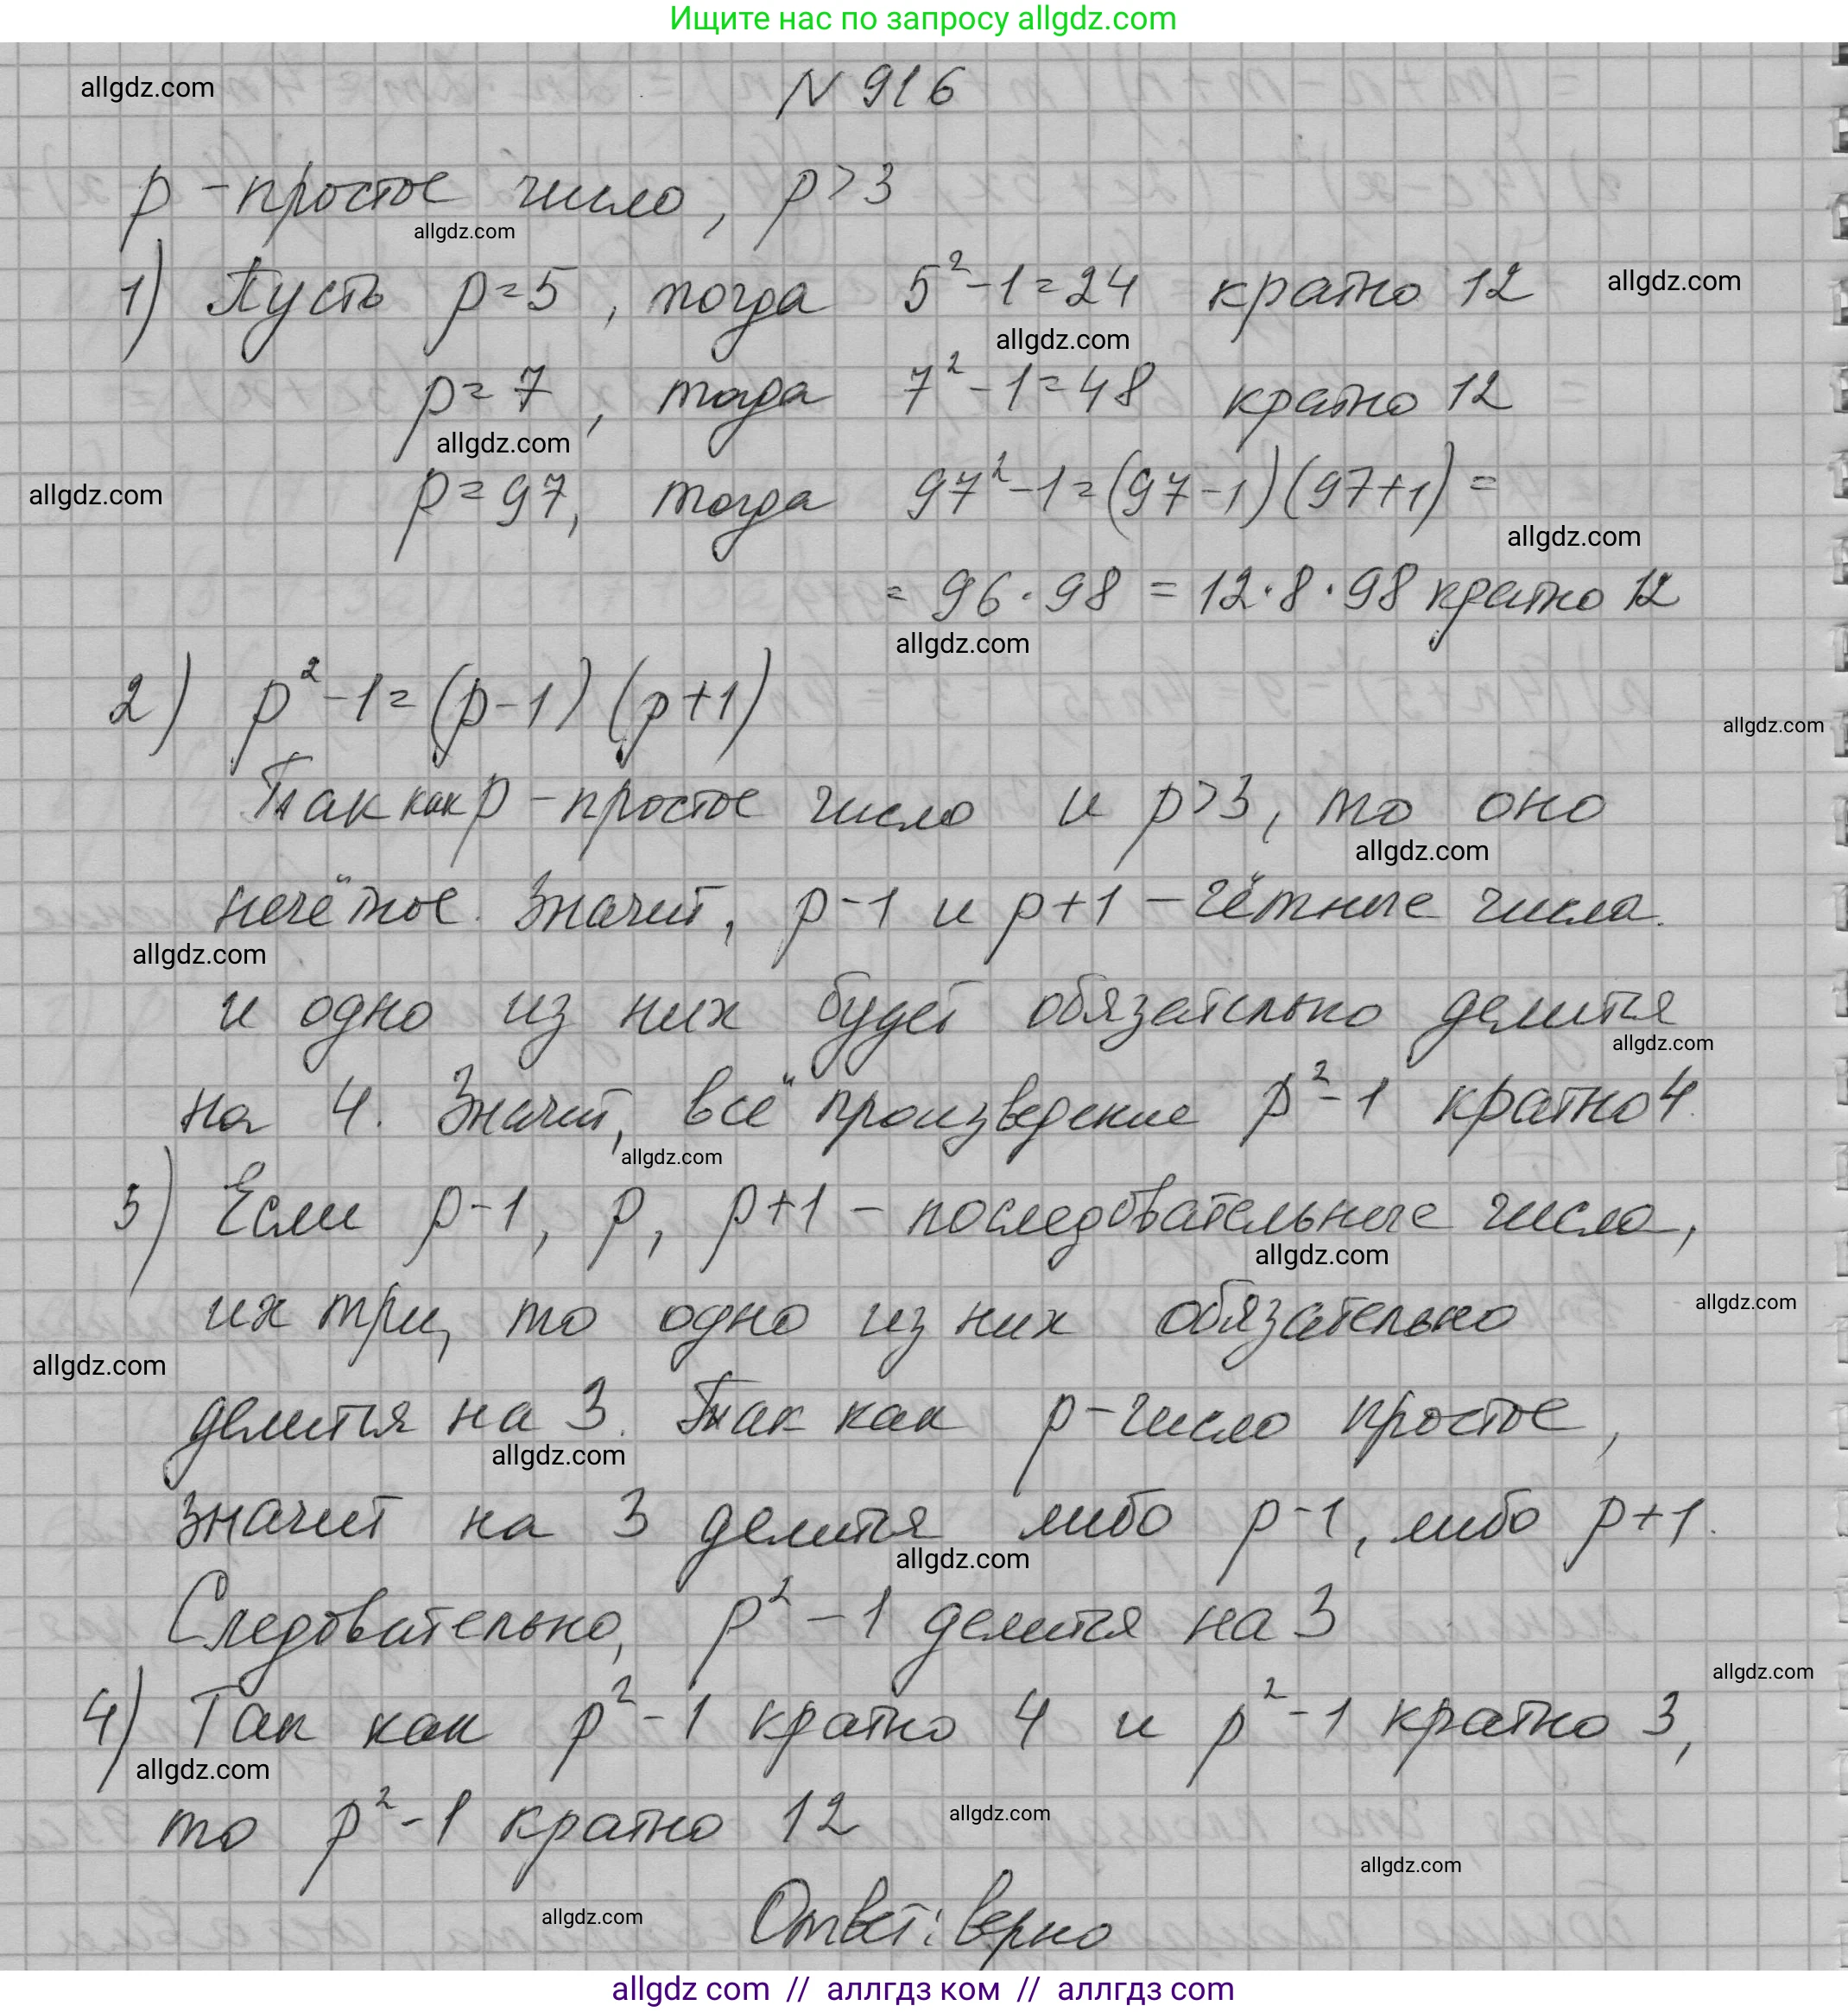 Ищите нас по запросу allgdz.com
allgdz.com
N 916
p - простое число, p > 3
allgdz.com
1) Пусть p = 5, тогда 5² - 1 = 24 кратно 12
allgdz.com
allgdz.com
p = 7, тогда 7² - 1 = 48 кратно 12
allgdz.com
allgdz.com
p = 97, тогда 97² - 1 = (97 - 1)(97 + 1) =
allgdz.com
= 96 · 98 = 12 · 8 · 98 кратно 12
allgdz.com
2) p² - 1 = (p - 1)(p + 1)
allgdz.com
Так как p - простое число и p > 3, то оно
allgdz.com
нечётное. Значит, p - 1 и p + 1 - чётные числа.
allgdz.com
и одно из них будет обязательно делится
allgdz.com
на 4. Значит, всё произведение p² - 1 кратно 4.
allgdz.com
3) Если p - 1, p, p + 1 - последовательные числа,
allgdz.com
их три, то одно из них обязательно
allgdz.com
allgdz.com
делится на 3. Так как p - число простое,
allgdz.com
значит на 3 делится либо p - 1, либо p + 1.
allgdz.com
Следовательно, p² - 1 делится на 3
allgdz.com
4) Так как p² - 1 кратно 4 и p² - 1 кратно 3,
allgdz.com
то p² - 1 кратно 12
allgdz.com
allgdz.com
allgdz.com
Ответ: верно
allgdz com // аллгдз ком // аллгдз com